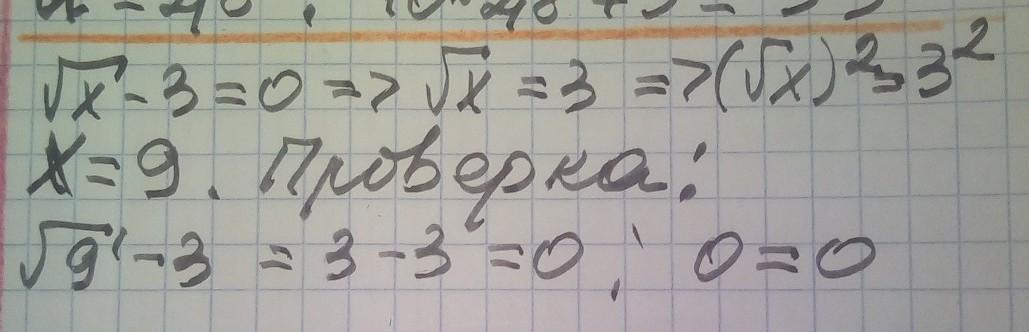 √x - 3 = 0 => √x = 3 => (√x)² = 3²
x = 9. Проверка:
√9 - 3 = 3 - 3 = 0; 0 = 0